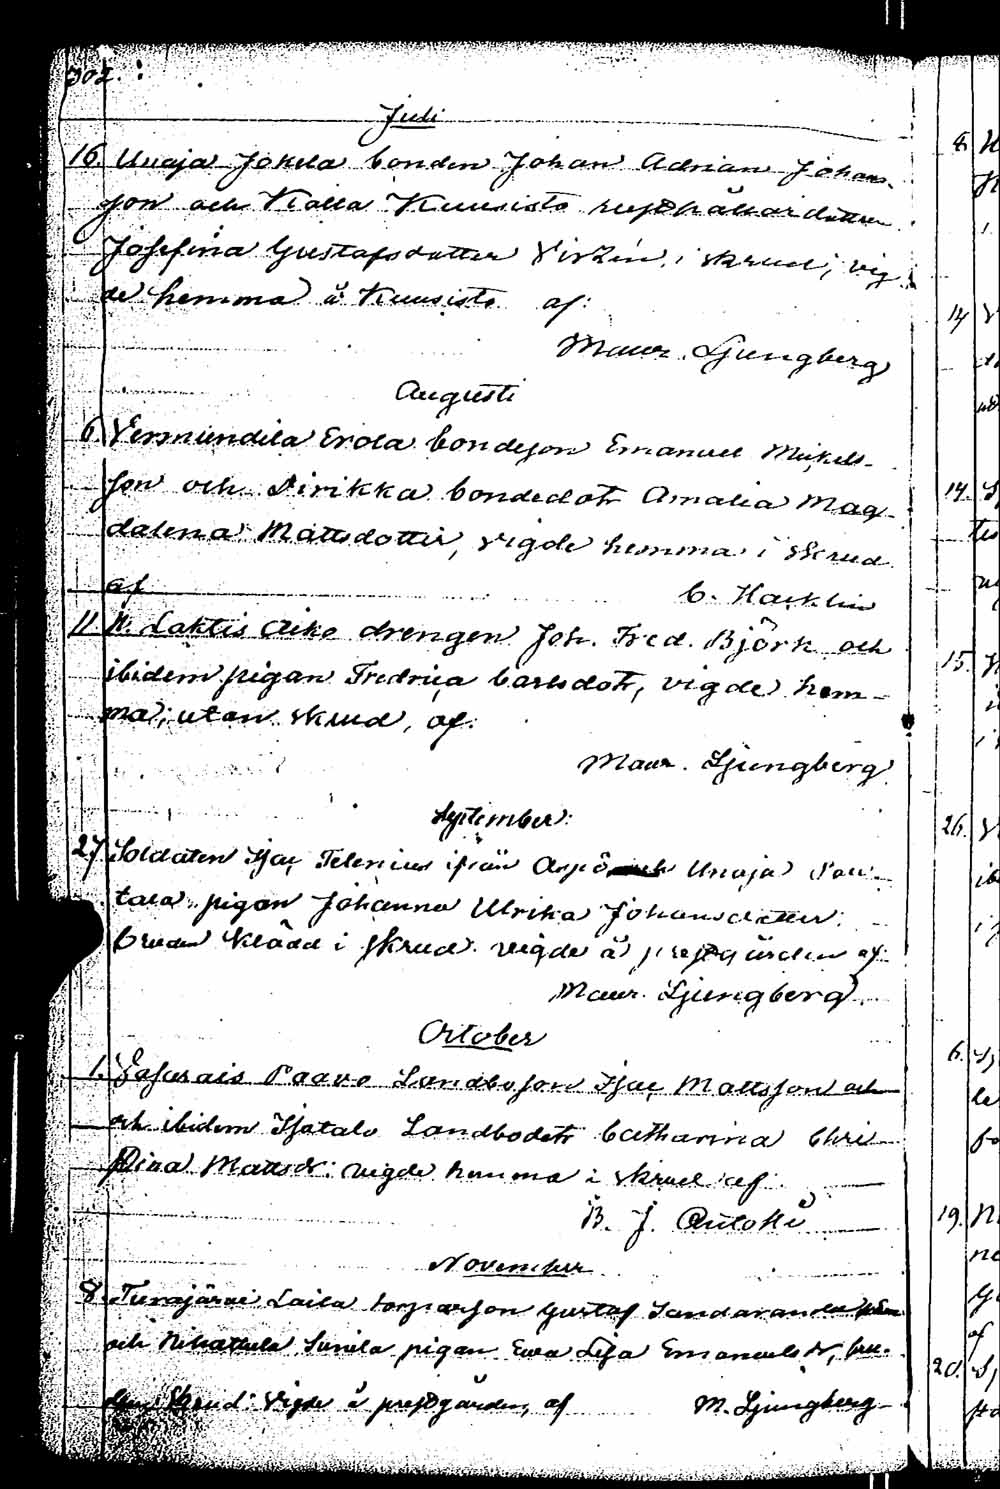 302.
Juli
16. Unaja Jokela bonden Johan Adrian Johans-
son och Kolla Kuusisto rusthållardottren
Josefina Gustafsdotter Virzén, i skrud, vig-
de hemma å Kuusisto af:
Maur. Ljungberg
Augusti
6. Vermundila Erola bondeson Emanuel Mickels-
son och Pirikka bondedotr Amalia Mag-
dalena Mattsdotter, vigde hemma i skrud
af C. Hacklin
11. N. Laktis Aiko drengen Joh. Fred. Björk och
ibidem pigan Fredrica Carlsdotr, vigde hem-
ma, utan skrud, af:
Maur. Ljungberg
September
27. Soldaten Isac Telenius ifrån Aspö och Unaja
tala pigan Johanna Ulrika Johansdotter
bruden klädd i skrud vigde å prestgården af
Maur. Ljungberg
October
1. Paavo Landboson Isac Mattsson och
och ibidem Landbodotr Catharina Chri
stina Mattsdr: vigde hemma i skrud af
B. J.
November
8. Laila torparson Gustaf
och pigan Eva Lisa Emanuelsdr, bru-
den skrud: Vigde å prestgården, af M. Ljungberg
8.
14
14.
15.
26.
6.
19.
20.